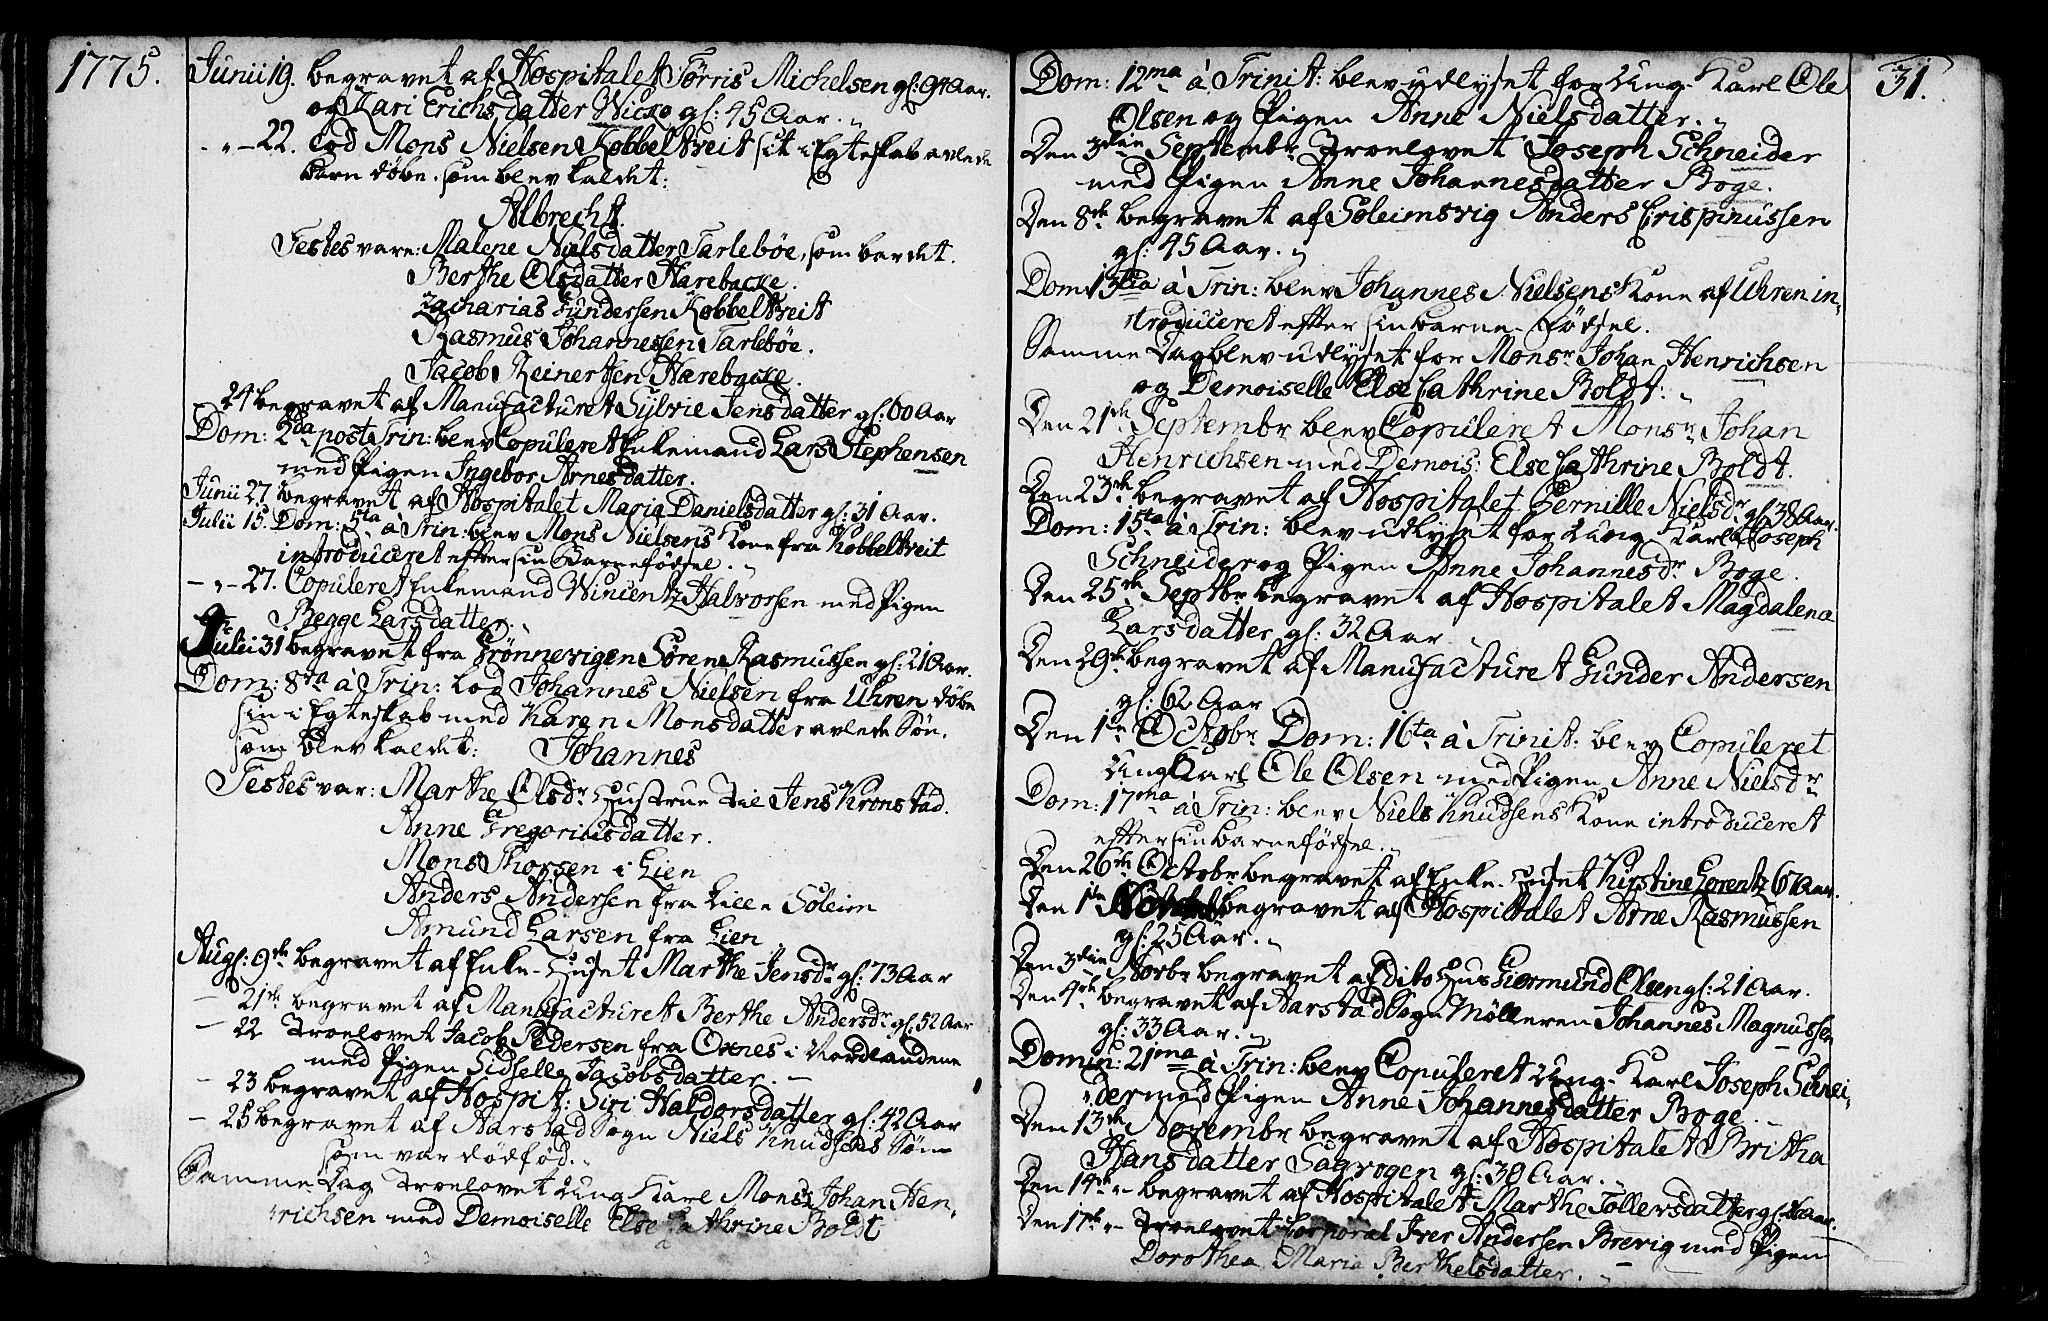 1775.
Junii 19. begravet af Hospitalet Tørris Michelsen gl: 91 Aar.
og Kari Erichsdatter gl: 45 Aar.
- „ - 22. Lod Mons Nielsen Kobbeltveit sit i Egteskab avlede
Barn døbe, som blev kaldet:
Albrecht.
Testes vare: Malene Nielsdatter Tarlebøe, som bar det.
Berthe Olsdatter Harebacke.
Zacharias Gundersen Kobbeltveit
Rasmus Johannesen Tarlebøe.
Jacob Reinertsen Harebacke.
24 begravet af Manufacturet Sylvie Jensdatter gl: 60 Aar
Dom: 2da post Trin: blev Copuleret Enkemand Lars Stephensen
med Pigen Ingebor Arnesdatter.
Junii 27. begravet af Hospitalet Maria Danielsdatter gl: 31 Aar.
Julii 15. Dom: 5ta à Trin: blev Mons Nielsens Kone fra Kobbeltveit
introduceret efter sin Barnefødsel.
- „ - 27. Copuleret Enkemand Wincentz Halvorsen med Pigen
Begge Larsdatter.
Julii 31 begravet fra Grønnevigen Søren Rasmussen gl: 21 Aar.
Dom: 8va à Trin: Lod Johannes Nielsen fra Uhren døbe
sin i Egteskab med Karen Monsdatter avlede Søn,
som blev kaldet: Johannes
Testes var: Marthe Olsdr Hustrue til Jens Kronstad.
Anne Gregoriusdatter.
Mons Thorsen i Lien
Anders Andersen fra Lille Soleim
Amund Larsen fra Lien
Augs: 9de begravet af Enke-Huset Marthe Jensdr gl: 73 Aar
- 21de begravet af Manufacturet Berthe Andersdr gl: 52 Aar
- 22 Troelovet Jacob Pedersen fra Oxnes i Nordlandene
med Pigen Sidselle Jacobsdatter.
- 23 begravet af Hospit: Siri Haldorsdatter gl: 42 Aar
- 25 begravet af Aarstad Sogn Niels Knudsens Søn
som var dødfød.
Samme Dag Troelovet Ung Karl Monsr Johan Hen-
richsen med Demoiselle Else Cathrine Boldt
31.
Dom: 12ma à Trinit: blev udlyset for Ung-Karl Ole
Olsen og Pigen Anne Nielsdatter.
Den 3die Septembr Troelovet Joseph Schneider
med Pigen Anne Johannesdatter Boge.
Den 8de begravet af Soleimsvig Anders Crispinussen
gl: 45 Aar.
Dom: 13tia à Trin: blev Johannes Nielsens Kone af Uhren in-
troduceret efter sin Barne-fødsel.
Samme Dag blev udlyset for Monsr Johan Henrichsen
og Demoiselle Else Cathrine Boldt.
Den 21de Septembr blev Copuleret Monsr Johan
Henrichsen med Demois: Else Cathrine Boldt.
Den 23de begravet af Hospitalet Pernille Nielsdr gl: 38 Aar.
Dom: 15ta à Trin: blev udlyset for Ung Karl Joseph
Schneider og Pigen Anne Johannesdr Boge.
Den 25de Septbr begravet af Hospitalet Magdalena
Larsdatter gl: 32 Aar
Den 29de begravet af Manufacturet Gunder Andersen
gl: 62 Aar
Den 1te Octobr Dom: 16ta à Trinit: blev Copuleret
Ung Karl Ole Olsen med Pigen Anne Nielsdr
Dom: 17ma à Trin: blev Niels Knudsens Kone introduceret
efter sin barnefødsel.
Den 26de Octobr begravet af Enke-Huset Kirstine Lorentz 67 Aar.
Den 1te begravet af Hospitalet Arne Rasmussen
gl: 25 Aar.
Den 3die Novbr begravet af dito Hus Giermund Olsen gl: 21 Aar.
Den 4de begravet af Aarstad Sogn Mølleren Johannes Magnussen
gl: 33 Aar.
Domin: 21ma à Trin: blev Copuleret Ung-Karl Joseph Schnei-
der med Pigen Anne Johannesdatter Boge.
Den 13de Novembr begravet af Hospitalet Britha
Hansdatter Sagvogen gl: 38 Aar.
Den 14de - begravet af Hospitalet Marthe Tollersdatter gl: Aar.
Den 17de - Troelovet Corporal Iver Andersen Brevig med Pigen
Dorothea Maria Berthelsdatter.